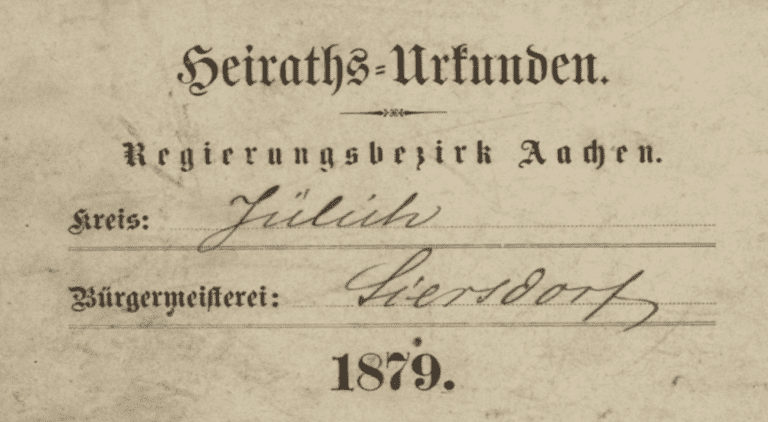 Heiraths-Urkunden.
Regierungsbezirk Aachen.
Kreis: Jülich
Bürgermeisterei: Siersdorf
1879.